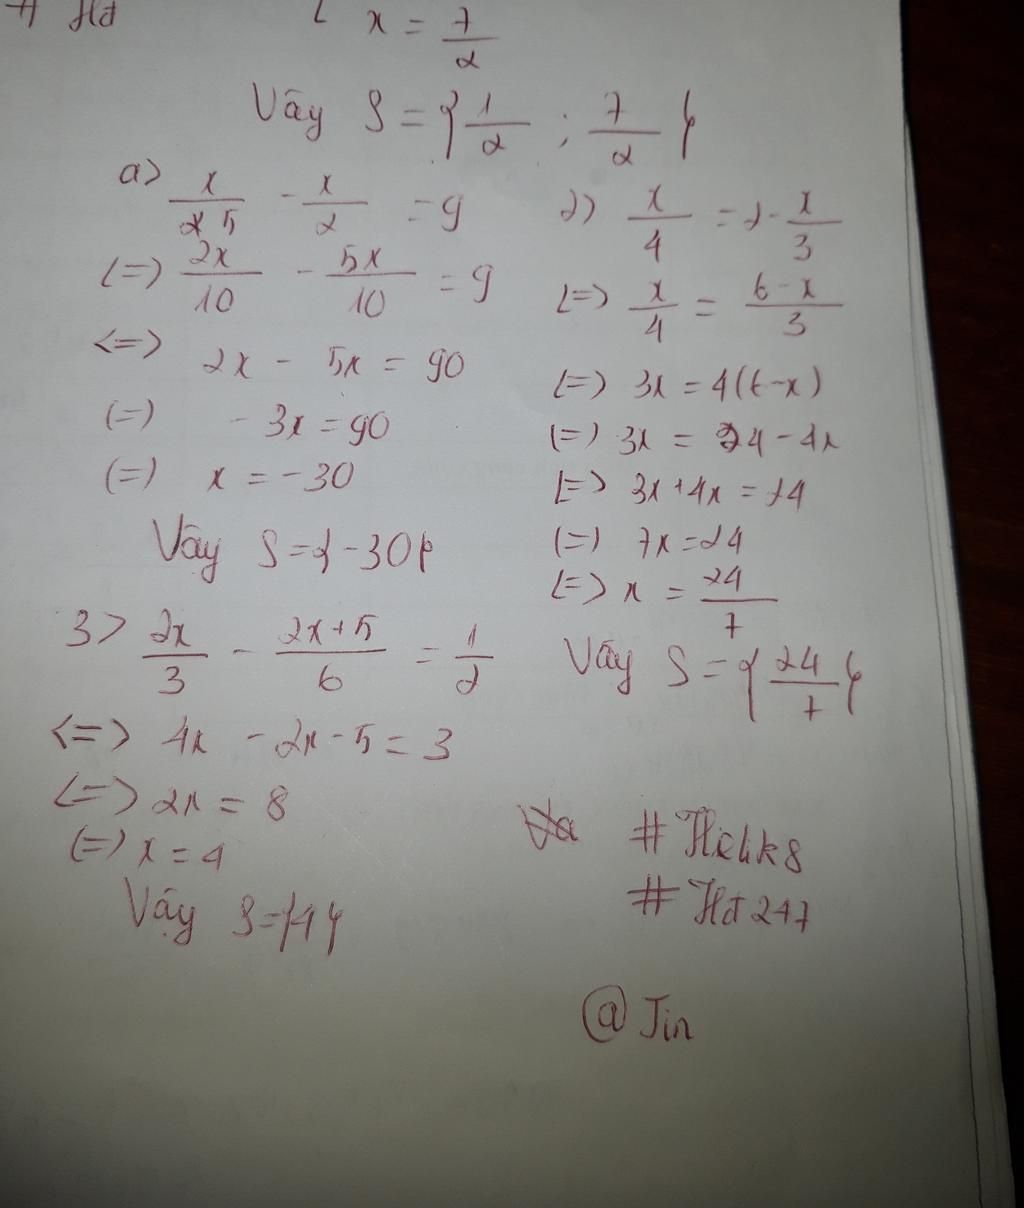 # Hđ
x = 7/2
Vãy S = { 1/2 ; 7/2 }
a) x/5 - x/2 = 9
(=) 2x/10 - 5x/10 = 9
<=> 2x - 5x = 90
(=) - 3x = 90
(=) x = -30
Vậy S = {-30}
2) x/4 = 2 - x/3
(=) x/4 = 6-x/3
(=) 3x = 4(6-x)
(=) 3x = 24 - 4x
(=) 3x + 4x = 24
(=) 7x = 24
(=) x = 24/7
Vãy S = { 24/7 }
3) 2x/3 - 2x+5/6 = 1/2
<=> 4x - 2x - 5 = 3
(=) 2x = 8
(=) x = 4
Vậy S = {4}
# Hđ 247
@ Jin